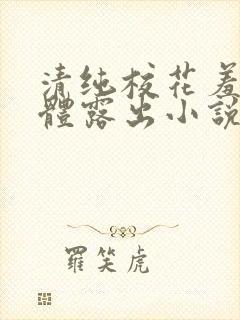 清纯校花羞
體露出小說
羅笑虎